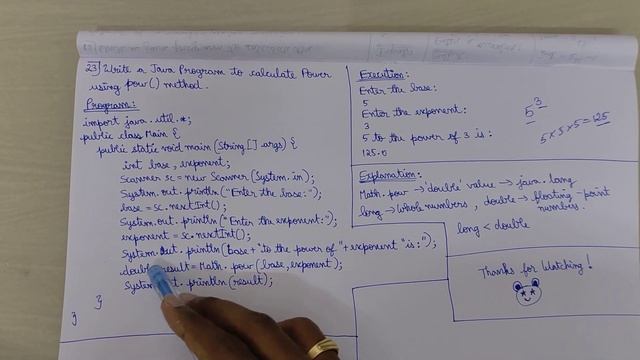 23) Write a Java Program to calculate Power
using pow() method.
Program:
import java.util.*;
public class Main {
public static void main (String[] args) {
int base, exponent;
Scanner sc = new Scanner (System.in);
System.out.println("Enter the base:");
base = sc.nextInt();
System.out.println("Enter the exponent:");
exponent = sc.nextInt();
System.out.println(base + "to the power of "+ exponent "is:");
double result = Math.pow (base, exponent);
System.out.println(result);
}
}
Execution:
Enter the base:
5
Enter the exponent:
3
5 to the power of 3 is:
125.0
5³
5 x 5 x 5 = 125
Explanation:
Math.pow → 'double' value → java.lang
long → whole numbers, double → floating-point
numbers.
long < double
Thanks for Watching!